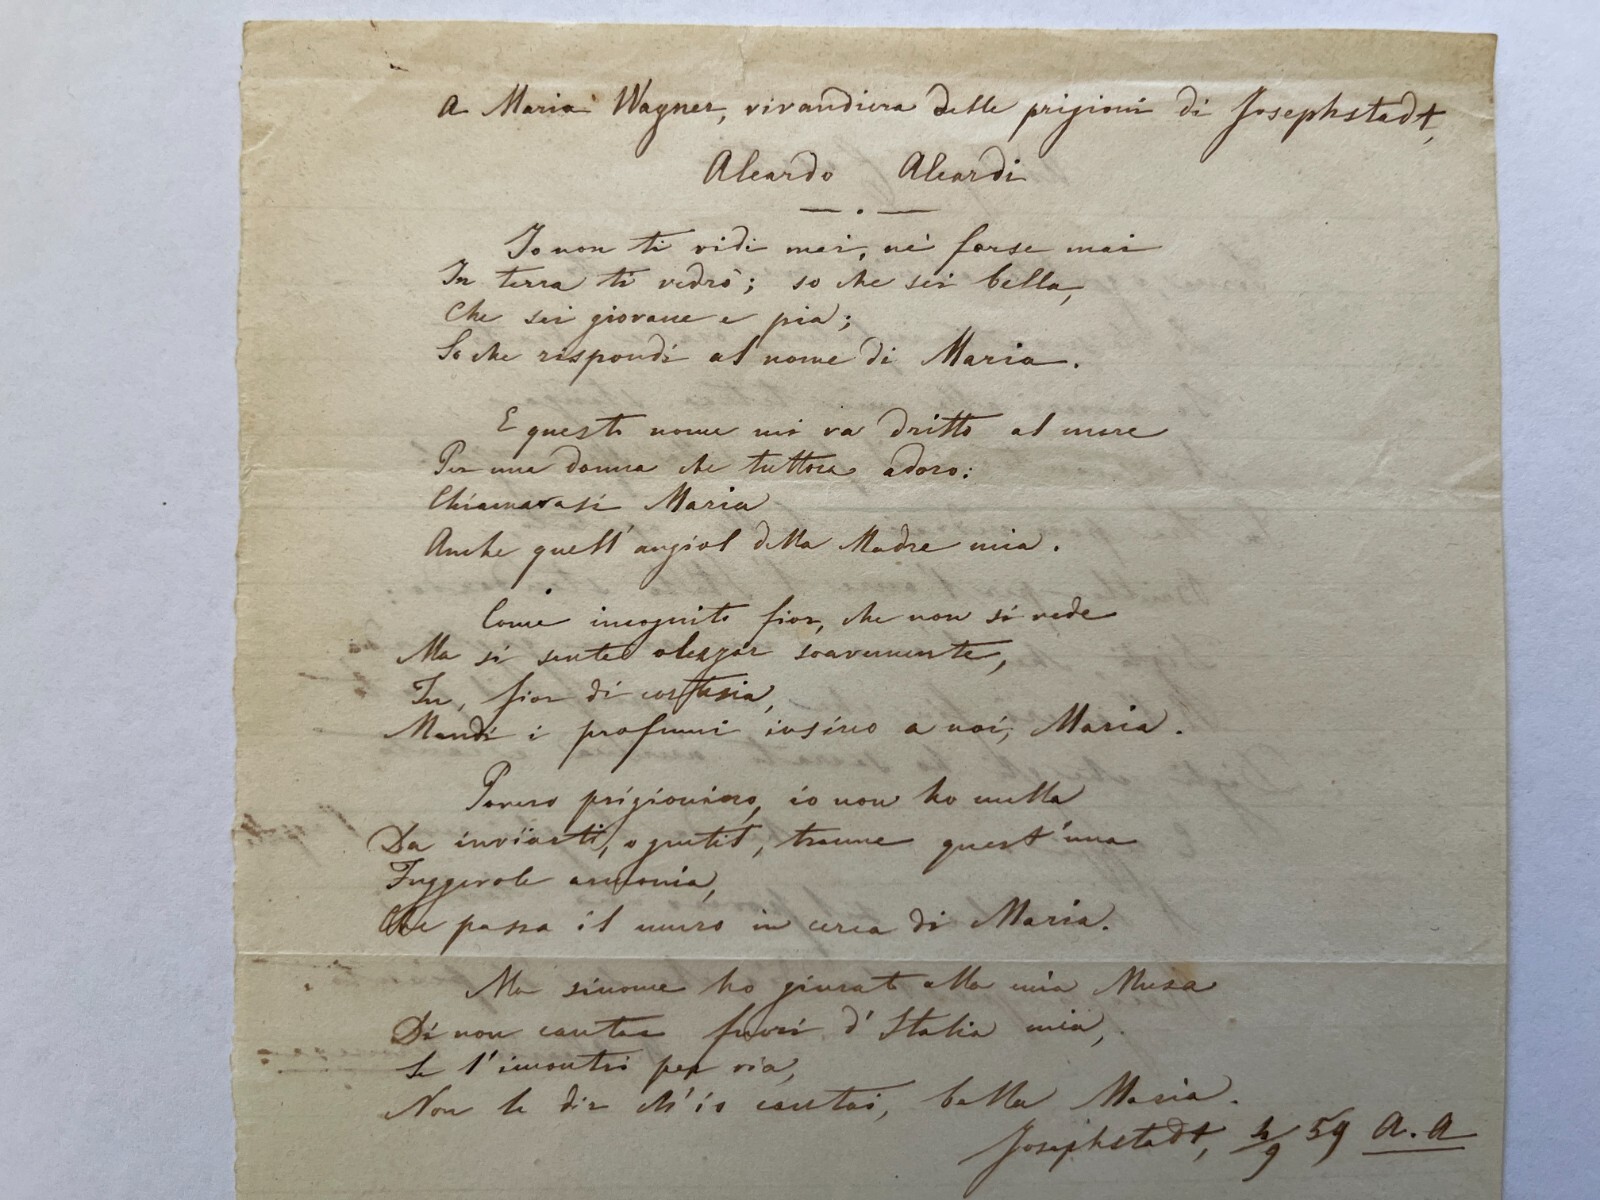 A Maria Wagner, vivandiera delle prigioni di Josephstadt,
Aleardo Aleardi
Io non ti vidi mai, nè forse mai
In terra ti vedrò; so che sei bella,
Che sei giovane e pia;
So che rispondi al nome di Maria.
E questo nome mi va dritto al core
Per una donna che tuttora adoro:
Chiamavasi Maria
Anche quell'angiol della Madre mia.
Come incognito fior, che non si vede
Ma si sente olezzar soavemente,
Tu, fior di cortesia,
Mandi i profumi insino a noi, Maria.
Povero prigioniero, io non ho nulla
Da invïarti, o gentil, tranne quest'una
Fuggevole armonia,
Che passa il muro in cerca di Maria.
Ma siccome ho giurato alla mia Musa
Di non cantar fuori d'Italia mia,
Se l'incontri per via,
Non le dir ch'io cantai, bella Maria.
Josephstadt, 59 A. A